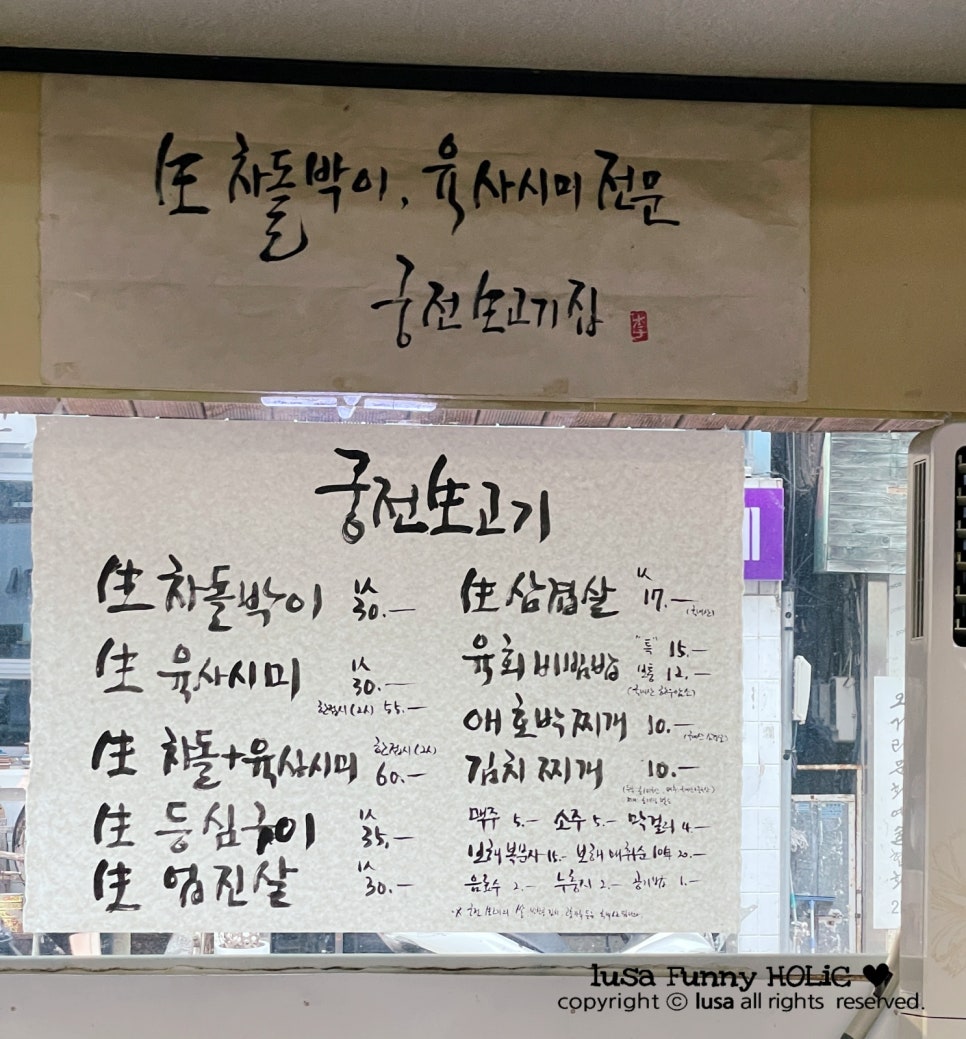 生 차돌박이, 육사시미 전문
궁전 生고기집
李
궁전生고기
生 차돌박이 1人 30.—
生 육사시미 1人 30.—
한접시(2人) 55.—
生 차돌+육사시미 한접시(2人) 60.—
生 등심구이 1人 35.—
生 업진살 1人 30.—
生 삼겹살 1人 17.—
(국내산)
육회비빔밥 "특" 15.—
보통 12.—
애호박찌개 10.—
김치찌개 10.—
맥주 5.— 소주 5.— 막걸리 4.—
보해 복분자 15.— 보해 매취순 10年 20.—
음료수 2.— 누룽지 2.— 공기밥 1.—
luSa Funny HOLiC ♥
copyright ⓒ lusa all rights reserved.